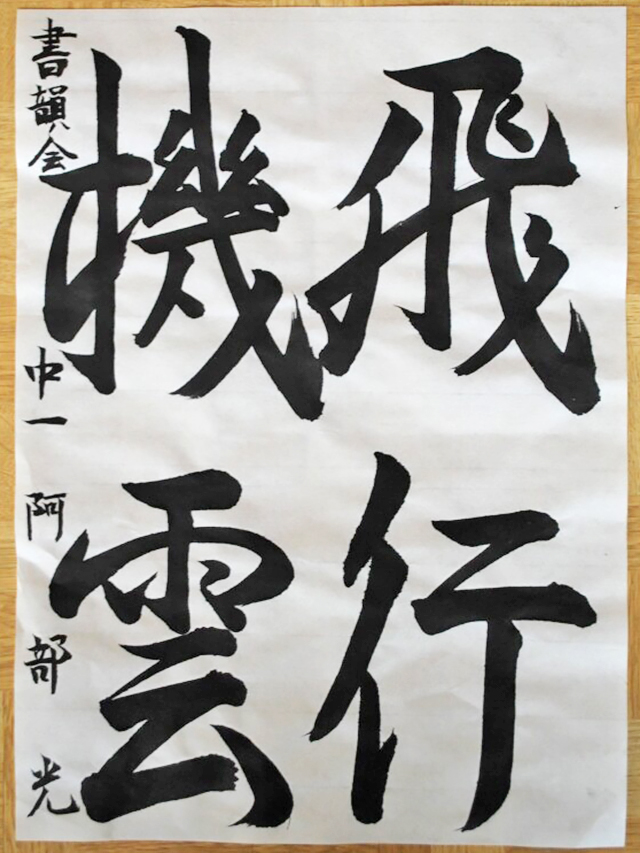 飛行
機雲
書韻会 中一 阿部 光